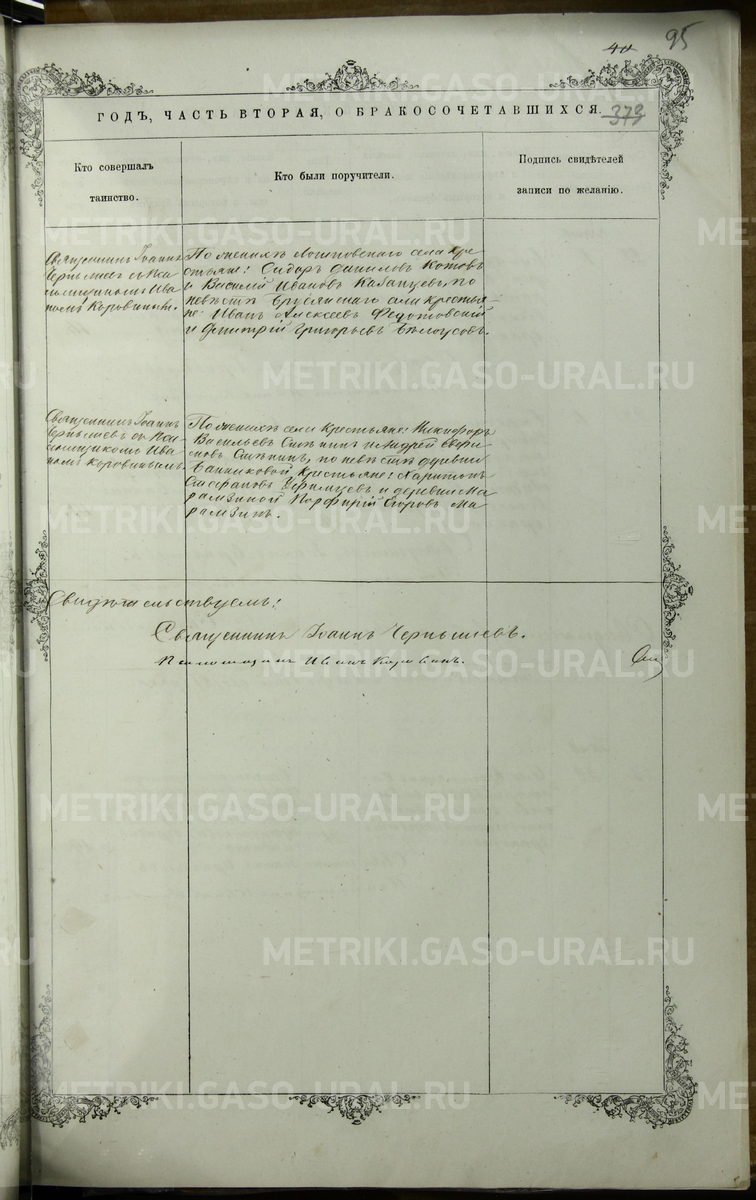 40 95
ГОДЪ, ЧАСТЬ ВТОРАЯ, О БРАКОСОЧЕТАВШИХСЯ. 373
Кто совершалъ
таинство.
Кто были поручители.
Подпись свидѣтелей
записи по желанію.
Священникъ Іоаннъ
Чернышевъ съ Пса-
ломщикомъ Ива-
номъ Коровинымъ.
По женихѣ села кре-
стьяне: Сидоръ Даниловъ Котовъ
и Василій Ивановъ Казанцевъ, по
невѣстѣ Бруснянскаго села крестья-
не: Иванъ Алексеевъ Федотовскій
и Дмитрій Григорьевъ Бѣлоусовъ.
Священникъ Іоаннъ
Чернышевъ съ Пса-
ломщикомъ Ива-
номъ Коровинымъ.
По женихѣ села крестьяне: Никифоръ
Васильевъ и Андрей
по невѣстѣ деревни
Банниковой крестьяне: Харитонъ
Стефановъ и деревни Ма-
рамзиной Порфирій Егоровъ Ма-
рамзинъ.
Свидѣтельствуемъ:
Священникъ Іоаннъ Чернышевъ.
Псаломщикъ Иванъ Коровинъ.
METRIKI.GASO-URAL.RU